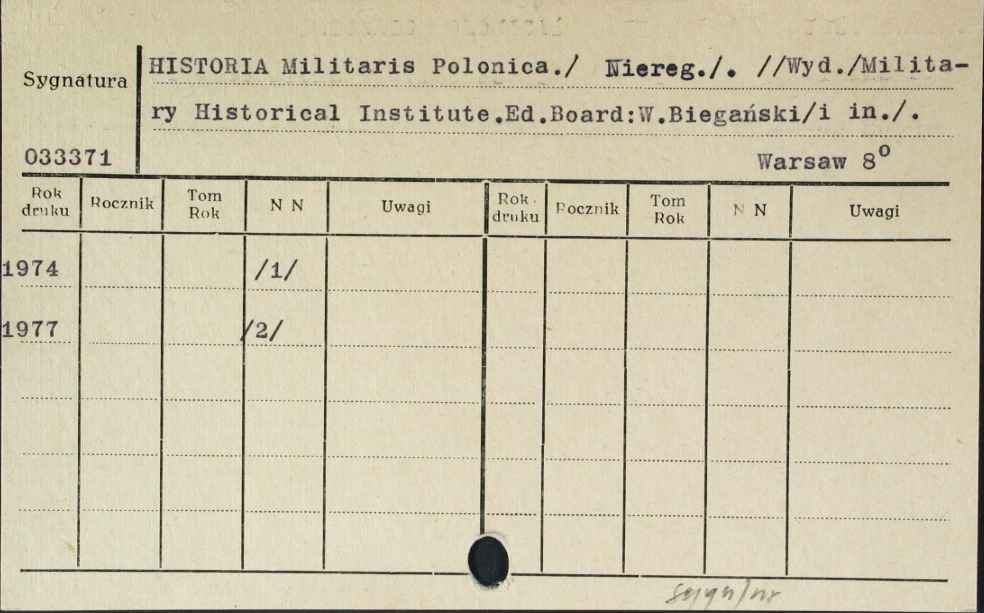 HISTORIA Militaris Polonica./ Niereg./. //Wyd./Milita-
Sygnatura
ry Historical Institute.Ed.Board:W.Biegański/i in./.
033371
Warsaw 8º
Rok druku Rocznik Tom Rok N N Uwagi Rok druku Rocznik Tom Rok N N Uwagi
1974 /1/
1977 /2/